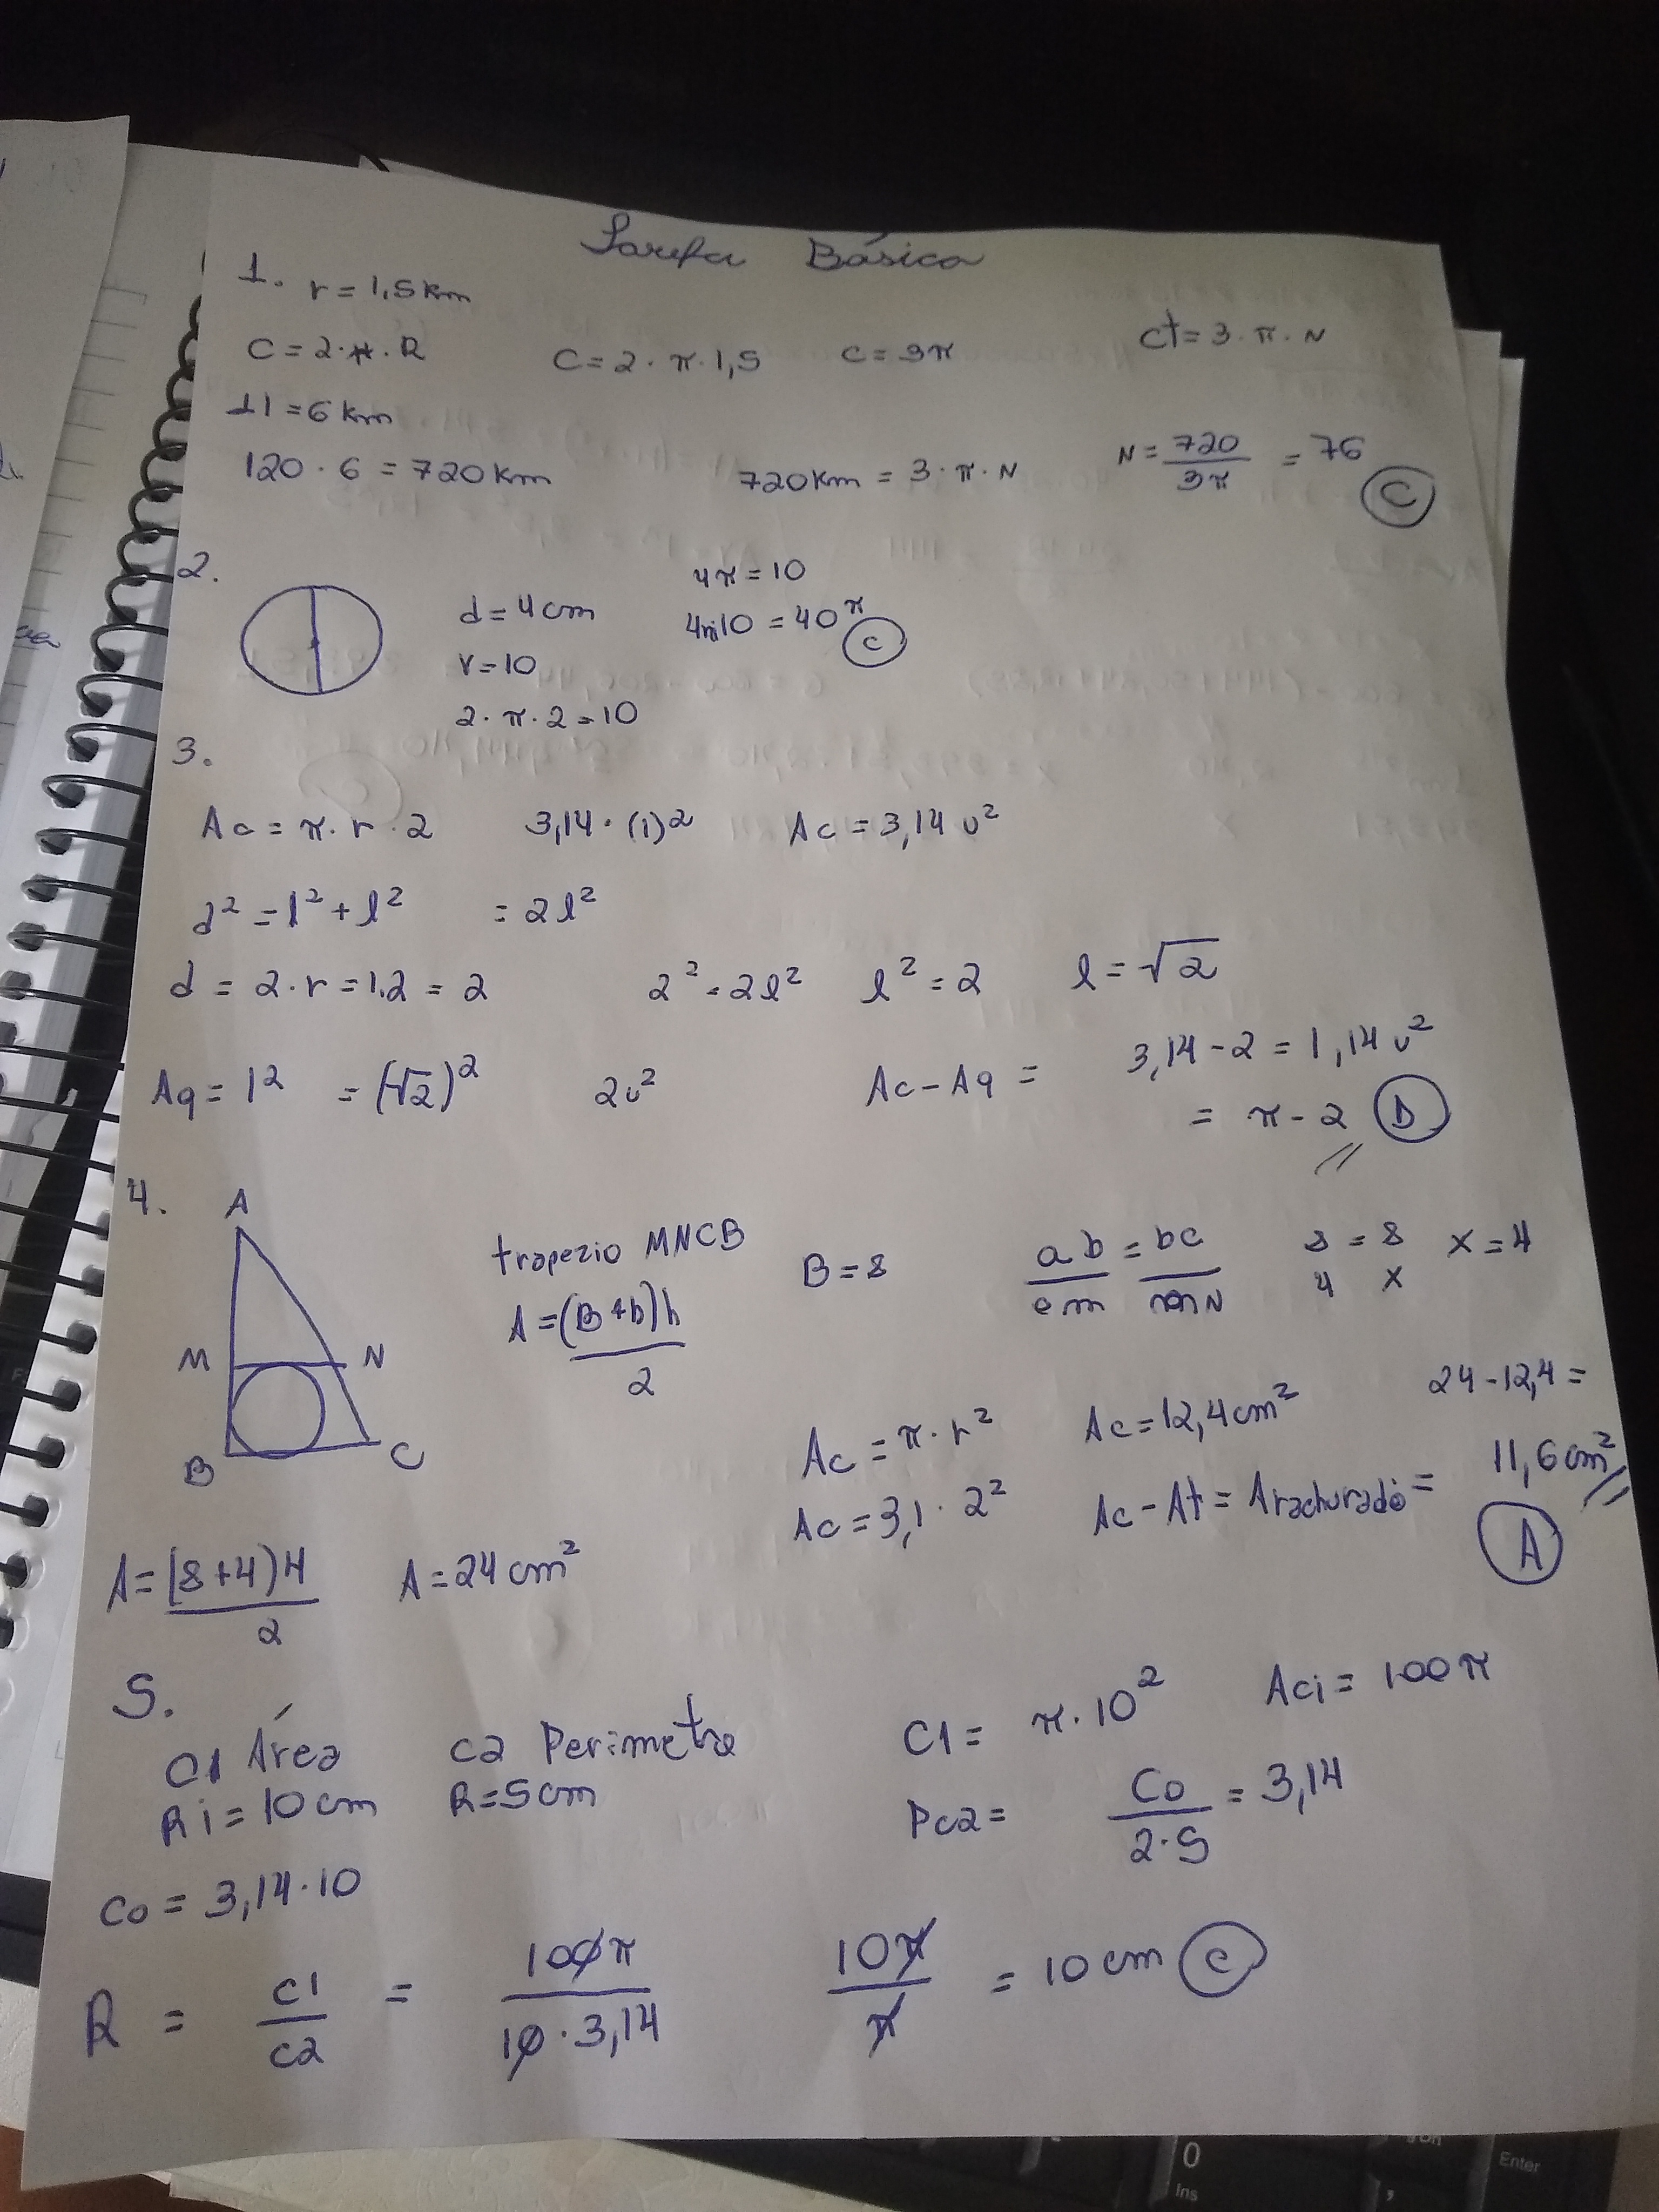 Tarefa Básica
1. r = 1,5 km
C = 2·π·R C = 2·π·1,5 C = 3π Ct = 3·π·N
d1 = 6 km
120·6 = 720 km 720 km = 3·π·N N = 720/3π = 76 (C)
2.
d = 4 cm 4π = 10
r = 10 4π·10 = 40π (C)
2·π·2 = 10
3.
Ac = π·r·2 3,14·(1)2 Ac = 3,14 u²
d² = l² + l² = 2l²
d = 2·r = 1.2 = 2 2² = 2l² l² = 2 l = √2
Aq = l² = (√2)² 2u² Ac - Aq = 3,14 - 2 = 1,14 u²
= π - 2 (D)
4.
A
M N
B C
trapezio MNCB B = 8 ab/em = bc/mN 8/4 = 8/x x = 4
A = (B+b)h/2
Ac = π·r² Ac = 12,4 cm² 24 - 12,4 =
Ac = 3,1·2² Ac - At = A rachurado = 11,6 cm²
(A)
A = (8+4)4/2 A = 24 cm²
5.
C1 Área C2 Perimetro C1 = π·10² Aci = 100π
Ri = 10 cm R = 5 cm Pc2 = Co/2·5 = 3,14
Co = 3,14·10
R = C1/C2 = 100π/10·3,14 10π/π = 10 cm (C)
0
Ins
Enter